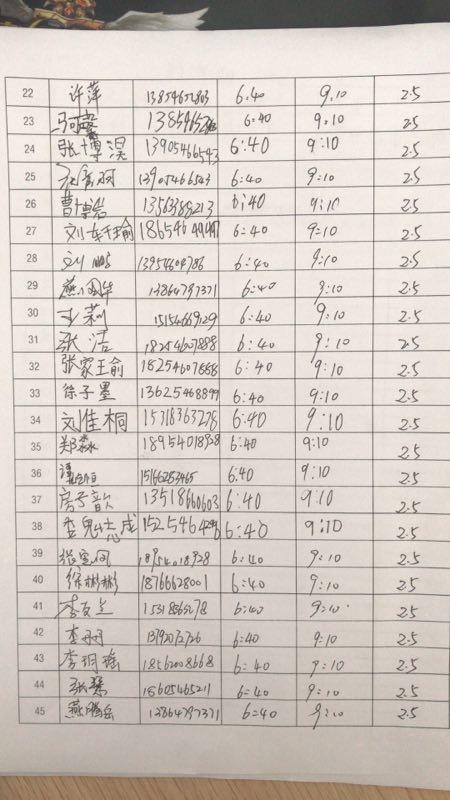 22 许萍 13854652803 6:40 9:10 2.5
23 6:40 9:10 2.5
24 张博淏 13905466543 6:40 9:10 2.5
25 13905466543 6:40 9:10 2.5
26 曹博岩 13563389213 6:40 9:10 2.5
27 6:40 9:10 2.5
28 13954604786 6:40 9:10 2.5
29 燕国华 13864797371 6:40 9:10 2.5
30 王莉 15154669129 6:40 9:10 2.5
31 张洁 18254607888 6:40 9:10 2.5
32 张家王俞 18254607668 6:40 9:10 2.5
33 徐子墨 13625468899 6:40 9:10 2.5
34 刘佳桐 15318363278 6:40 9:10 2.5
35 郑淼 18954018928 6:40 9:10 2.5
36 15166283465 6:40 9:10 2.5
37 房子歆 13518660603 6:40 9:10 2.5
38 6:40 9:10 2.5
39 18954018928 6:40 9:10 2.5
40 徐彬彬 18766628001 6:40 9:10 2.5
41 6:40 9:10 2.5
42 李珊 13792072726 6:40 9:10 2.5
43 李玥瑶 18562008668 6:40 9:10 2.5
44 18605465211 6:40 9:10 2.5
45 燕腾岳 13864797371 6:40 9:10 2.5